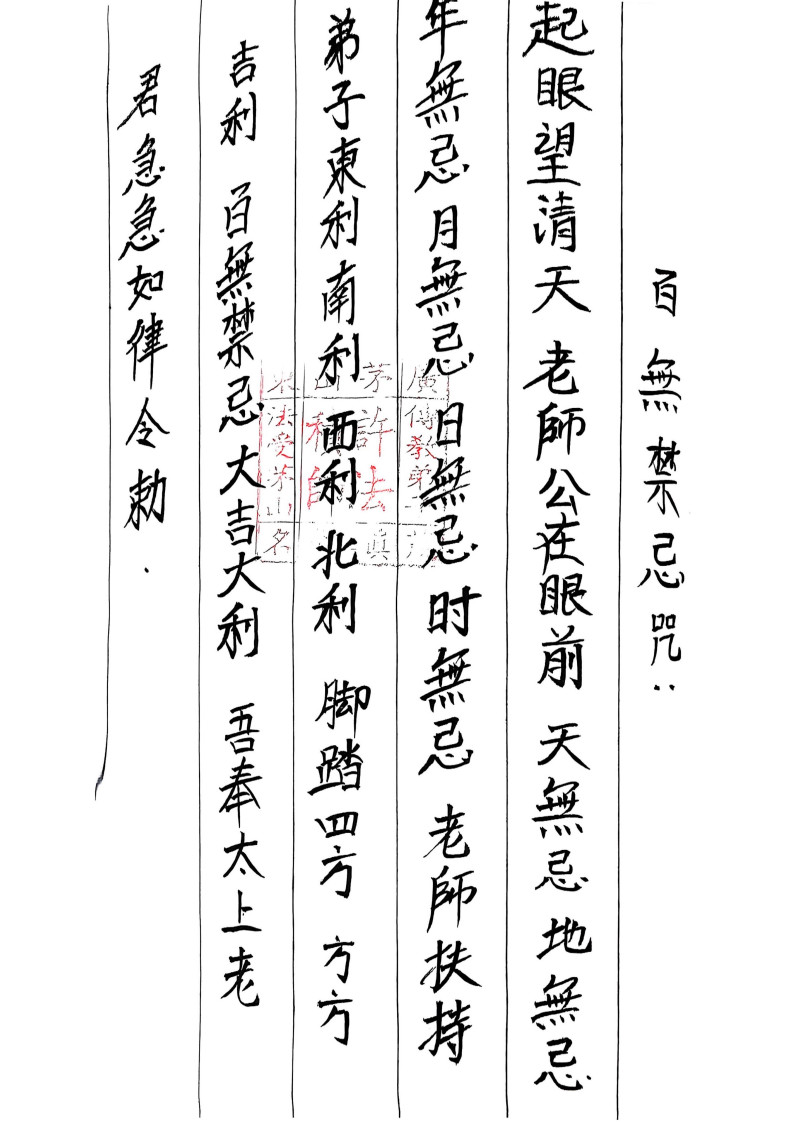 百無禁忌咒：
起眼望清天 老師公在眼前 天無忌 地無忌
年無忌 月無忌 日無忌 时無忌 老師扶持
弟子東利南利西利北利 脚踏四方 方方
吉利 百無禁忌大吉大利 吾奉太上老
君急急如律令勅．
廣傳教弟
茅許法真
法受茅山名